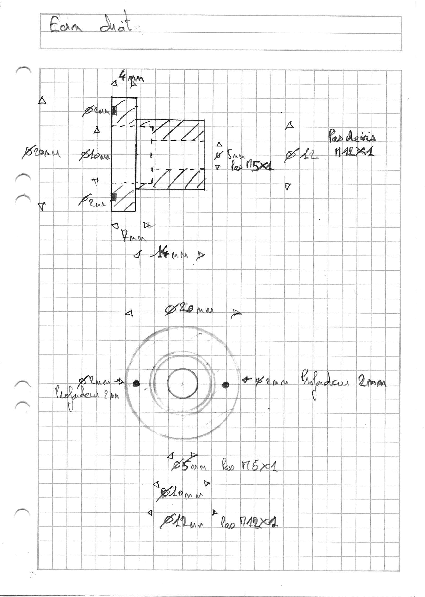 Ecrou
4mm
Ø2mm
Ø20mm
Ø10mm
Ø5mm
Pas M5x1
Ø12
Pas de vis
M12x1
Ø2mm
7mm
14mm
Ø20mm
Ø2mm
Profondeur 2mm
Ø2mm Profondeur 2mm
Ø5mm Pas M5x1
Ø10mm
Ø12mm Pas M12x1